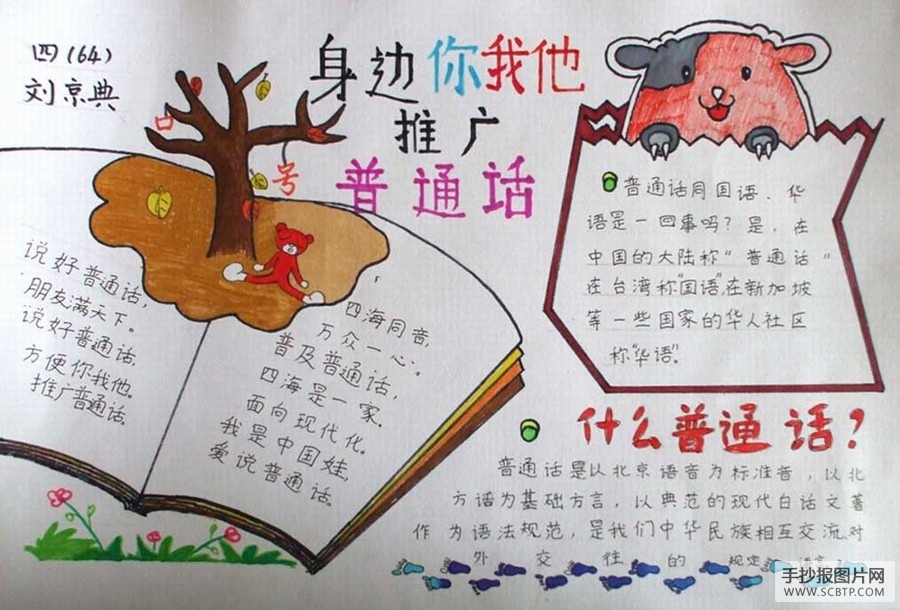 四(64)
刘京典
身边你我他
推广
普通话
口
号
说好普通话,
朋友满天下。
说好普通话,
方便你我他。
推广普通话。
四海同音,
万众一心。
普及普通话,
四海是一家。
面向现代化。
我是中国娃,
爱说普通话。
普通话同国语、华
语是一回事吗？是，在
中国的大陆称“普通话”
在台湾称“国语”,在新加坡
等一些国家的华人社区
称“华语”。
什么普通话？
普通话是以北京语音为标准音，以北
方话为基础方言，以典范的现代白话文著
作为语法规范，是我们中华民族相互交流对
外交往的规定
手抄报图片网
WWW.SCBTP.COM